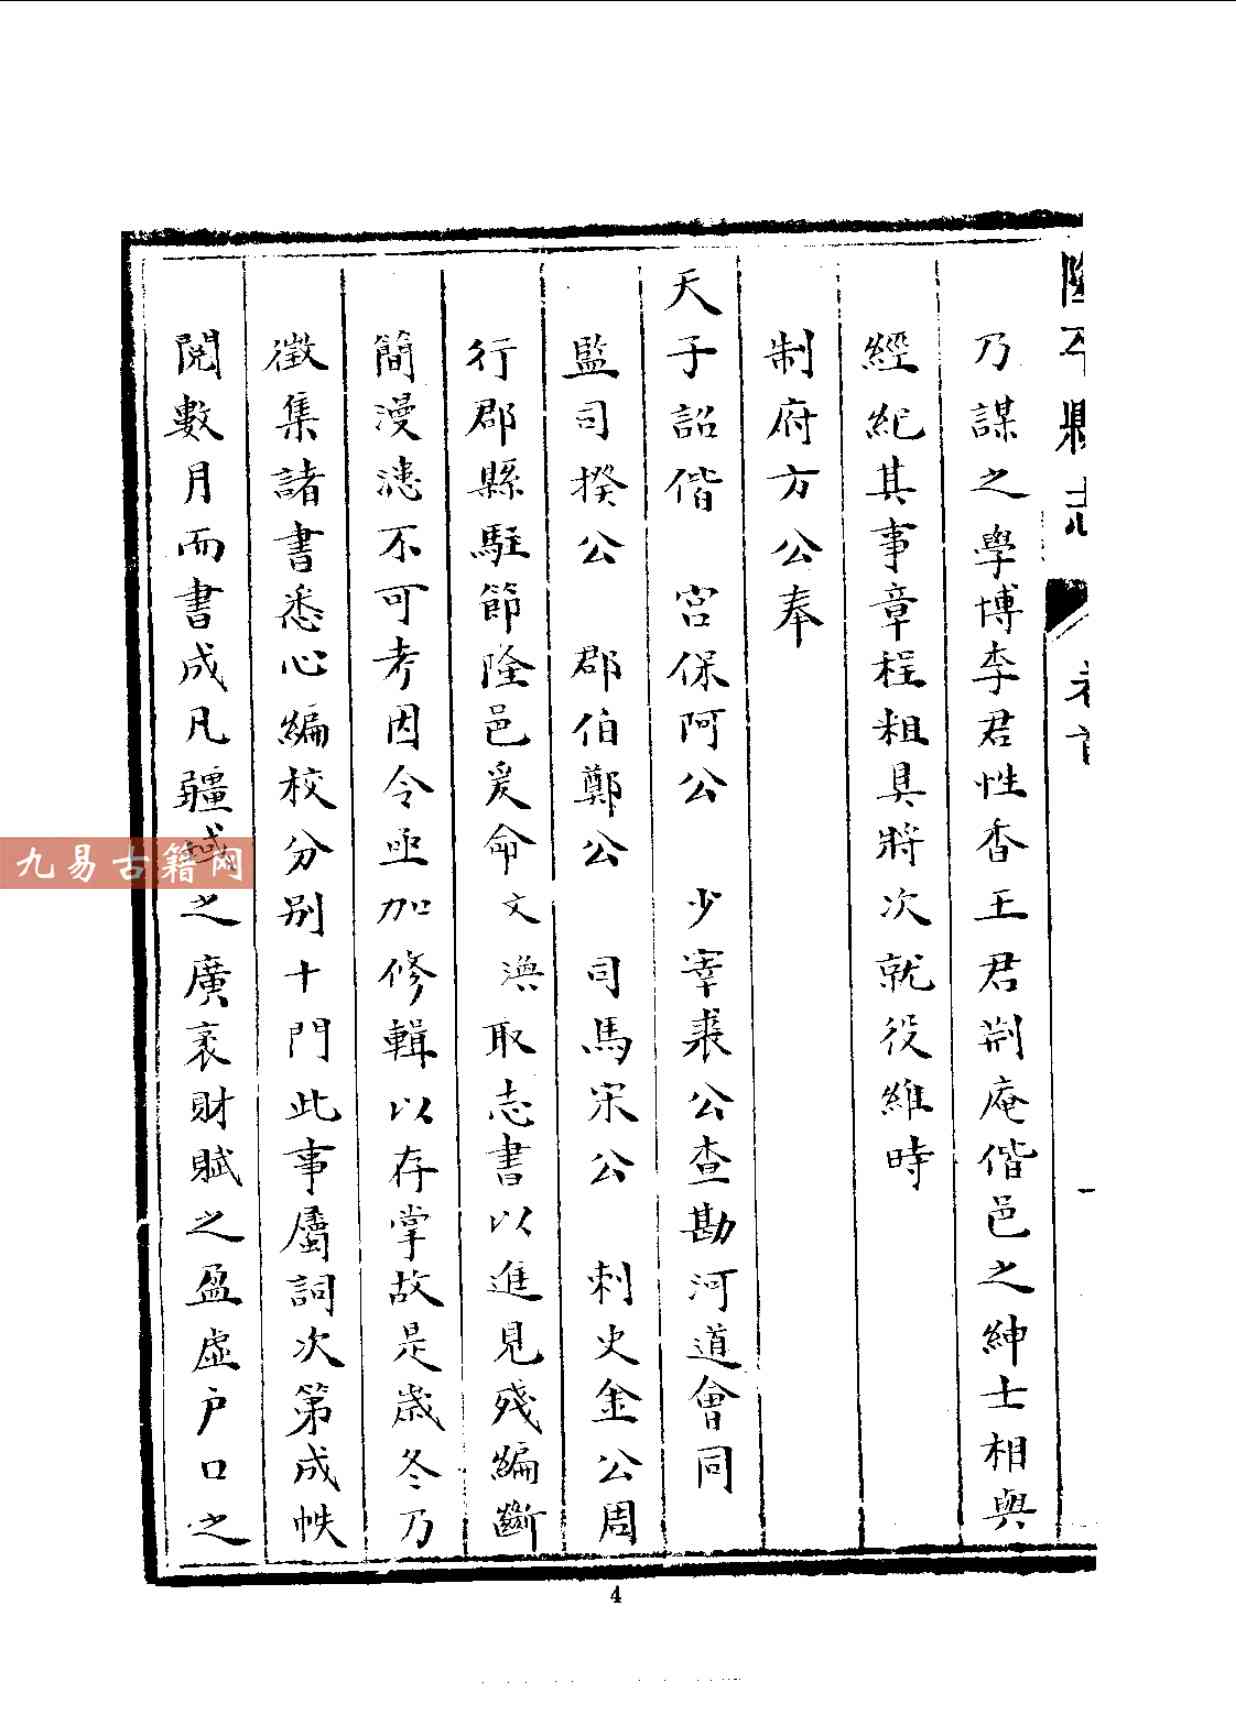 隆平縣志
卷首
一
乃謀之學博李君性香王君荆庵偕邑之紳士相與
經紀其事章程粗具將次就役維時
制府方公奉
天子詔偕 宮保阿公 少宰裘公查勘河道會同
監司揆公 郡伯鄭公 司馬宋公 刺史金公周
行郡縣駐節隆邑爰命文渙取志書以進見殘編斷
簡漫漶不可考因令亟加修輯以存掌故是歲冬乃
徵集諸書悉心編校分別十門此事屬詞次第成帙
閱數月而書成凡疆域之廣袤財賦之盈虛户口之
九易古籍网
4